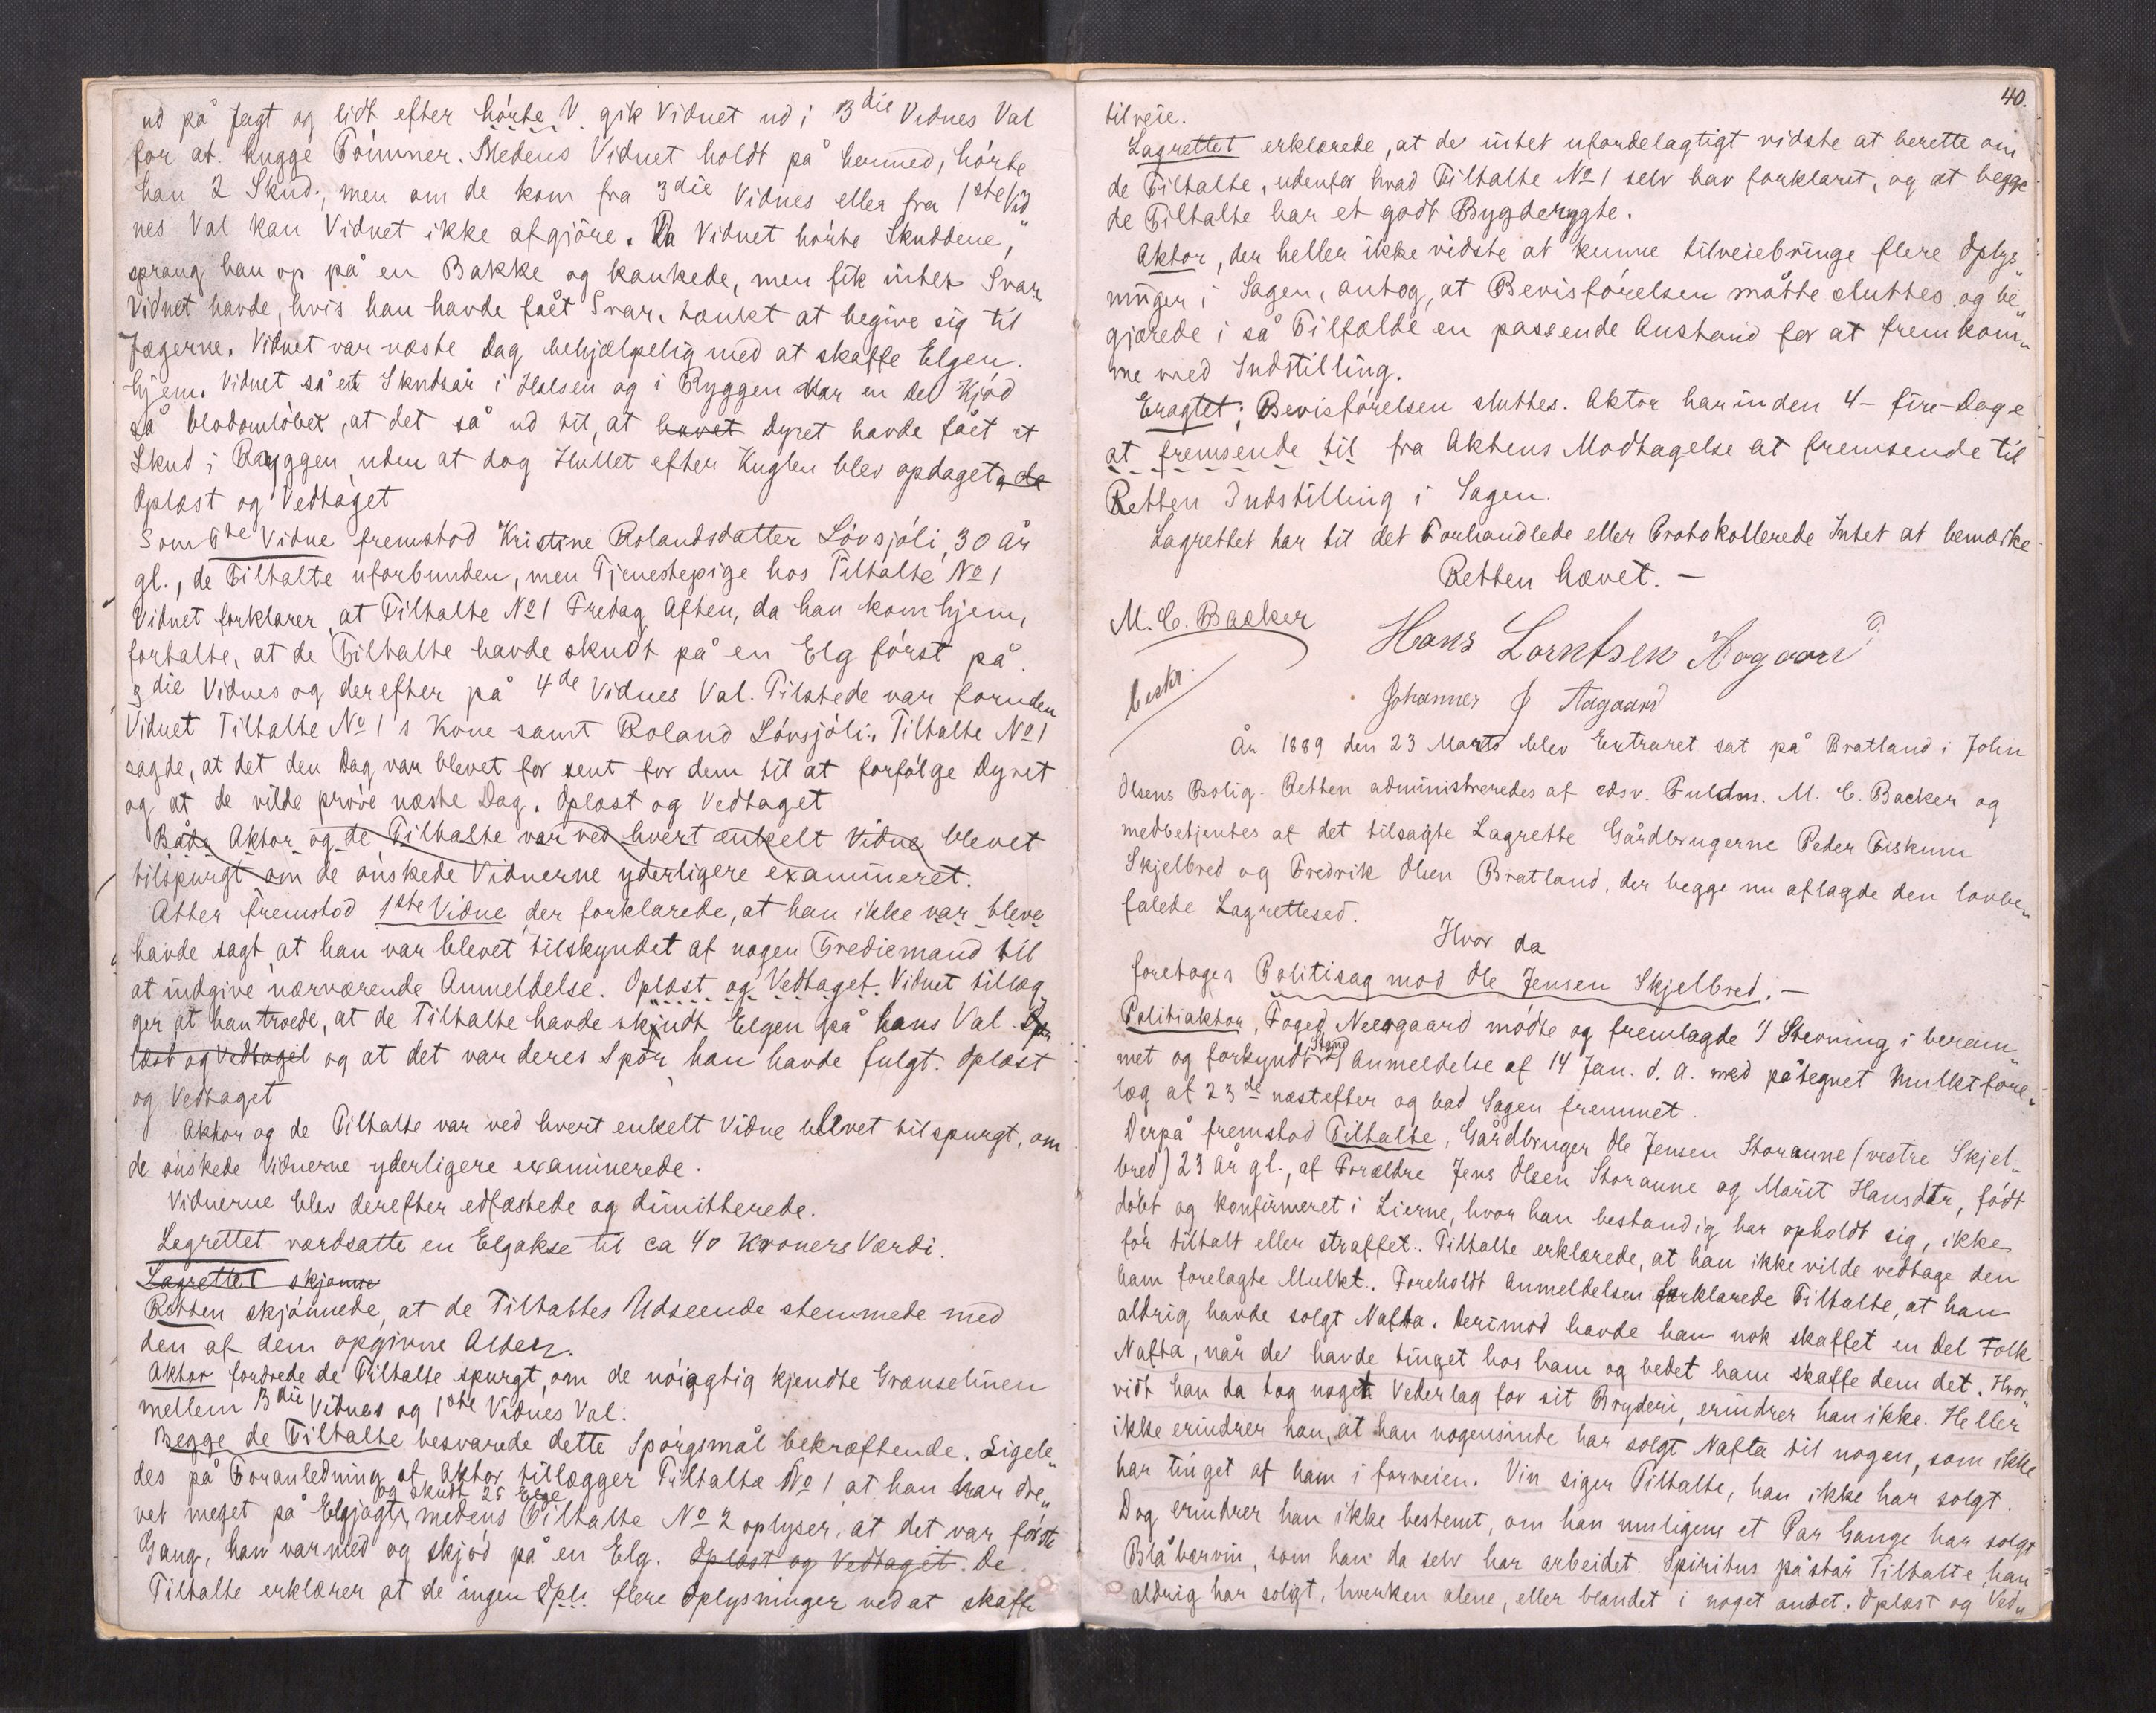 ud på Jagt og lidt efter hørte V. gik Vidnet ud i 3die Vidnes Val
for at hugge Tømmer. Medens Vidnet holdt på hermed, hørte
han 2 Skud, men om de kom fra 3die Vidnes eller fra 1ste Vid„
nes Val kan Vidnet ikke afgjöre. Da Vidnet hørte Skuddene,
sprang han op på en Bakke og kaukede, men fik intet Svar.
Vidnet havde, hvis han havde fået Svar, tænkt at begive sig til
Jægerne. Vidnet var næste Dag behjælpelig med at skaffe Elgen
hjem. Vidnet så et Skudsår i Halsen og i Ryggen var en Del Kjød
så blodomløbet, at det så ud til, at havet Dyret havde fået et
Skud i Ryggen, uden at dog Hullet efter Kuglen blev opdaget, de
Oplæst og Vedtaget
Som 6te Vidne fremstod Kristine Rolandsdatter Løvsjøli, 30 År
gl., de Tiltalte uforbunden, men Tjenestepige hos Tiltalte No 1
Vidnet forklarer, at Tiltalte No 1 Fredag Aften, da han kom hjem,
fortalte, at de Tiltalte havde skudt på en Elg først på
3die Vidnes og derefter på 4de Vidnes Val. Tilstede var foruden
Vidnet Tiltalte No 1 s Kone samt Roland Løvsjøli. Tiltalte No 1
sagde, at det den Dag var blevet for sent for dem til at forfølge Dyret
og at de vilde prøve næste Dag. Oplæst og Vedtaget
Både Aktor og de Tiltalte var ved hvert enkelt Vidne blevet
tilspurgt om de ønskede Vidnerne yderligere examineret.
Atter fremstod 1ste Vidne, der forklarede, at han ikke var bleve
havde sagt, at han var blevet tilskyndet af nogen Trediemand til
at indgive nærværende Anmeldelse. Oplæst og Vedtaget. Vidnet tillæg„
ger at han troede, at de Tiltalte havde skudt Elgen på hans Val. Op„
læst og Vedtaget og at det var deres Spor han havde fulgt. Oplæst
og Vedtaget
Aktor og de Tiltalte var ved hvert enkelt Vidne blevet tilspurgt, om
de ønskede Vidnerne yderligere examinerede.
Vidnerne blev derefter edfæstede og dimitterede.
Lagrettet værdsatte en Elgokse til ca 40 Kroners Værdi.
Lagrettet skjønne
Retten skjønnede, at de Tiltaltes Udseende stemmede med
den af dem opgivne Alder.
Aktor fordrede de Tiltalte spurgt, om de nøiagtig kjendte Grænselinen
mellem 3die Vidnes og 1ste Vidnes Val.
Begge de Tiltalte besvarede dette Spørgsmål bekræftende. Ligele„
des på Foranledning af Aktor tillægger Tiltalte No 1, at han har dre„
og skudt 25 Elge
vet meget på Elgjagt, medens Tiltalte No 2 oplyser, at det var første
Gang, han var med og skjød på en Elg. Oplæst og Vedtaget. De
Tiltalte erklærer at de ingen Opl. flere Oplysninger ved at skaffe
40.
tilveie.
Lagrettet erklærede, at de intet ufordelagtigt vidste at berette om
de Tiltalte, udenfor hvad Tiltalte No 1 selv har forklaret, og at begge
de Tiltalte har et godt Bygderygte.
Aktor, der heller ikke vidste at kunne tilveiebringe flere Oplys„
ninger i Sagen, antog, at Bevisførelsen måtte sluttes og be„
gjærede i så Tilfælde en passende Anstand for at fremkom„
me med Indstilling.
Eragtet: Bevisførelsen sluttes. Aktor har inden 4 - fire - Dage
at fremsende til fra Aktens Modtagelse at fremsende til
Retten Indstilling i Sagen.
Lagrettet har til det Forhandlede eller Protokollerede Intet at bemærke
Retten hævet. —
M. C. Backer
Hans Lorntsen Aagaard
beskr.
Johannes J Aagaard
År 1889 den 23 Marts blev Extraret sat på Bratland i John
Olsens Bolig. Retten administreredes af edsv. Fuldm. M. C. Backer og
medbetjentes af det tilsagte Lagrette Gårdbrugerne Peder Fiskum
Skjelbred og Fredrik Olsen Bratland, der begge nu aflagde den lovbe„
falede Lagrettesed.
Hvor da
foretoges Politisag mod Ole Jensen Skjelbred. —
Politiaktor, Foged Neergaard mødte og fremlagde 1) Stevning i beram„
met og forkyndt Stand 2) Anmeldelse af 14 Jan. d. A. med påtegnet Mulktfore„
læg af 23de næstefter og bad Sagen fremmet.
Derpå fremstod Tiltalte, Gårdbruger Ole Jensen Storaune (vestre Skjel„
bred) 23 År gl., af Forældre Jens Olsen Storaune og Marit Hansdtr, født
døbt og konfirmeret i Lierne, hvor han bestandig har opholdt sig, ikke
før tiltalt eller straffet. Tiltalte erklærede, at han ikke vilde vedtage den
ham forelagte Mulkt. Foreholdt Anmeldelsen forklarede Tiltalte, at han
aldrig havde solgt Nafta. Derimod havde han nok skaffet en Del Folk
Nafta, når de havde tinget hos ham og bedet ham skaffe dem det. Hvor„
vidt han da tog noget Vederlag for sit Bryderi, erindrer han ikke. Heller
ikke erindrer han, at han nogensinde har solgt Nafta til nogen, som ikke
har tinget af ham i forveien. Vin siger Tiltalte, han ikke har solgt.
Dog erindrer han ikke bestemt, om han muligens et Par Gange har solgt
Blåbærvin, som han da selv har arbeidet. Spiritus påstår Tiltalte, han
aldrig har solgt, hverken alene, eller blandet i noget andet. Oplæst og Ved„